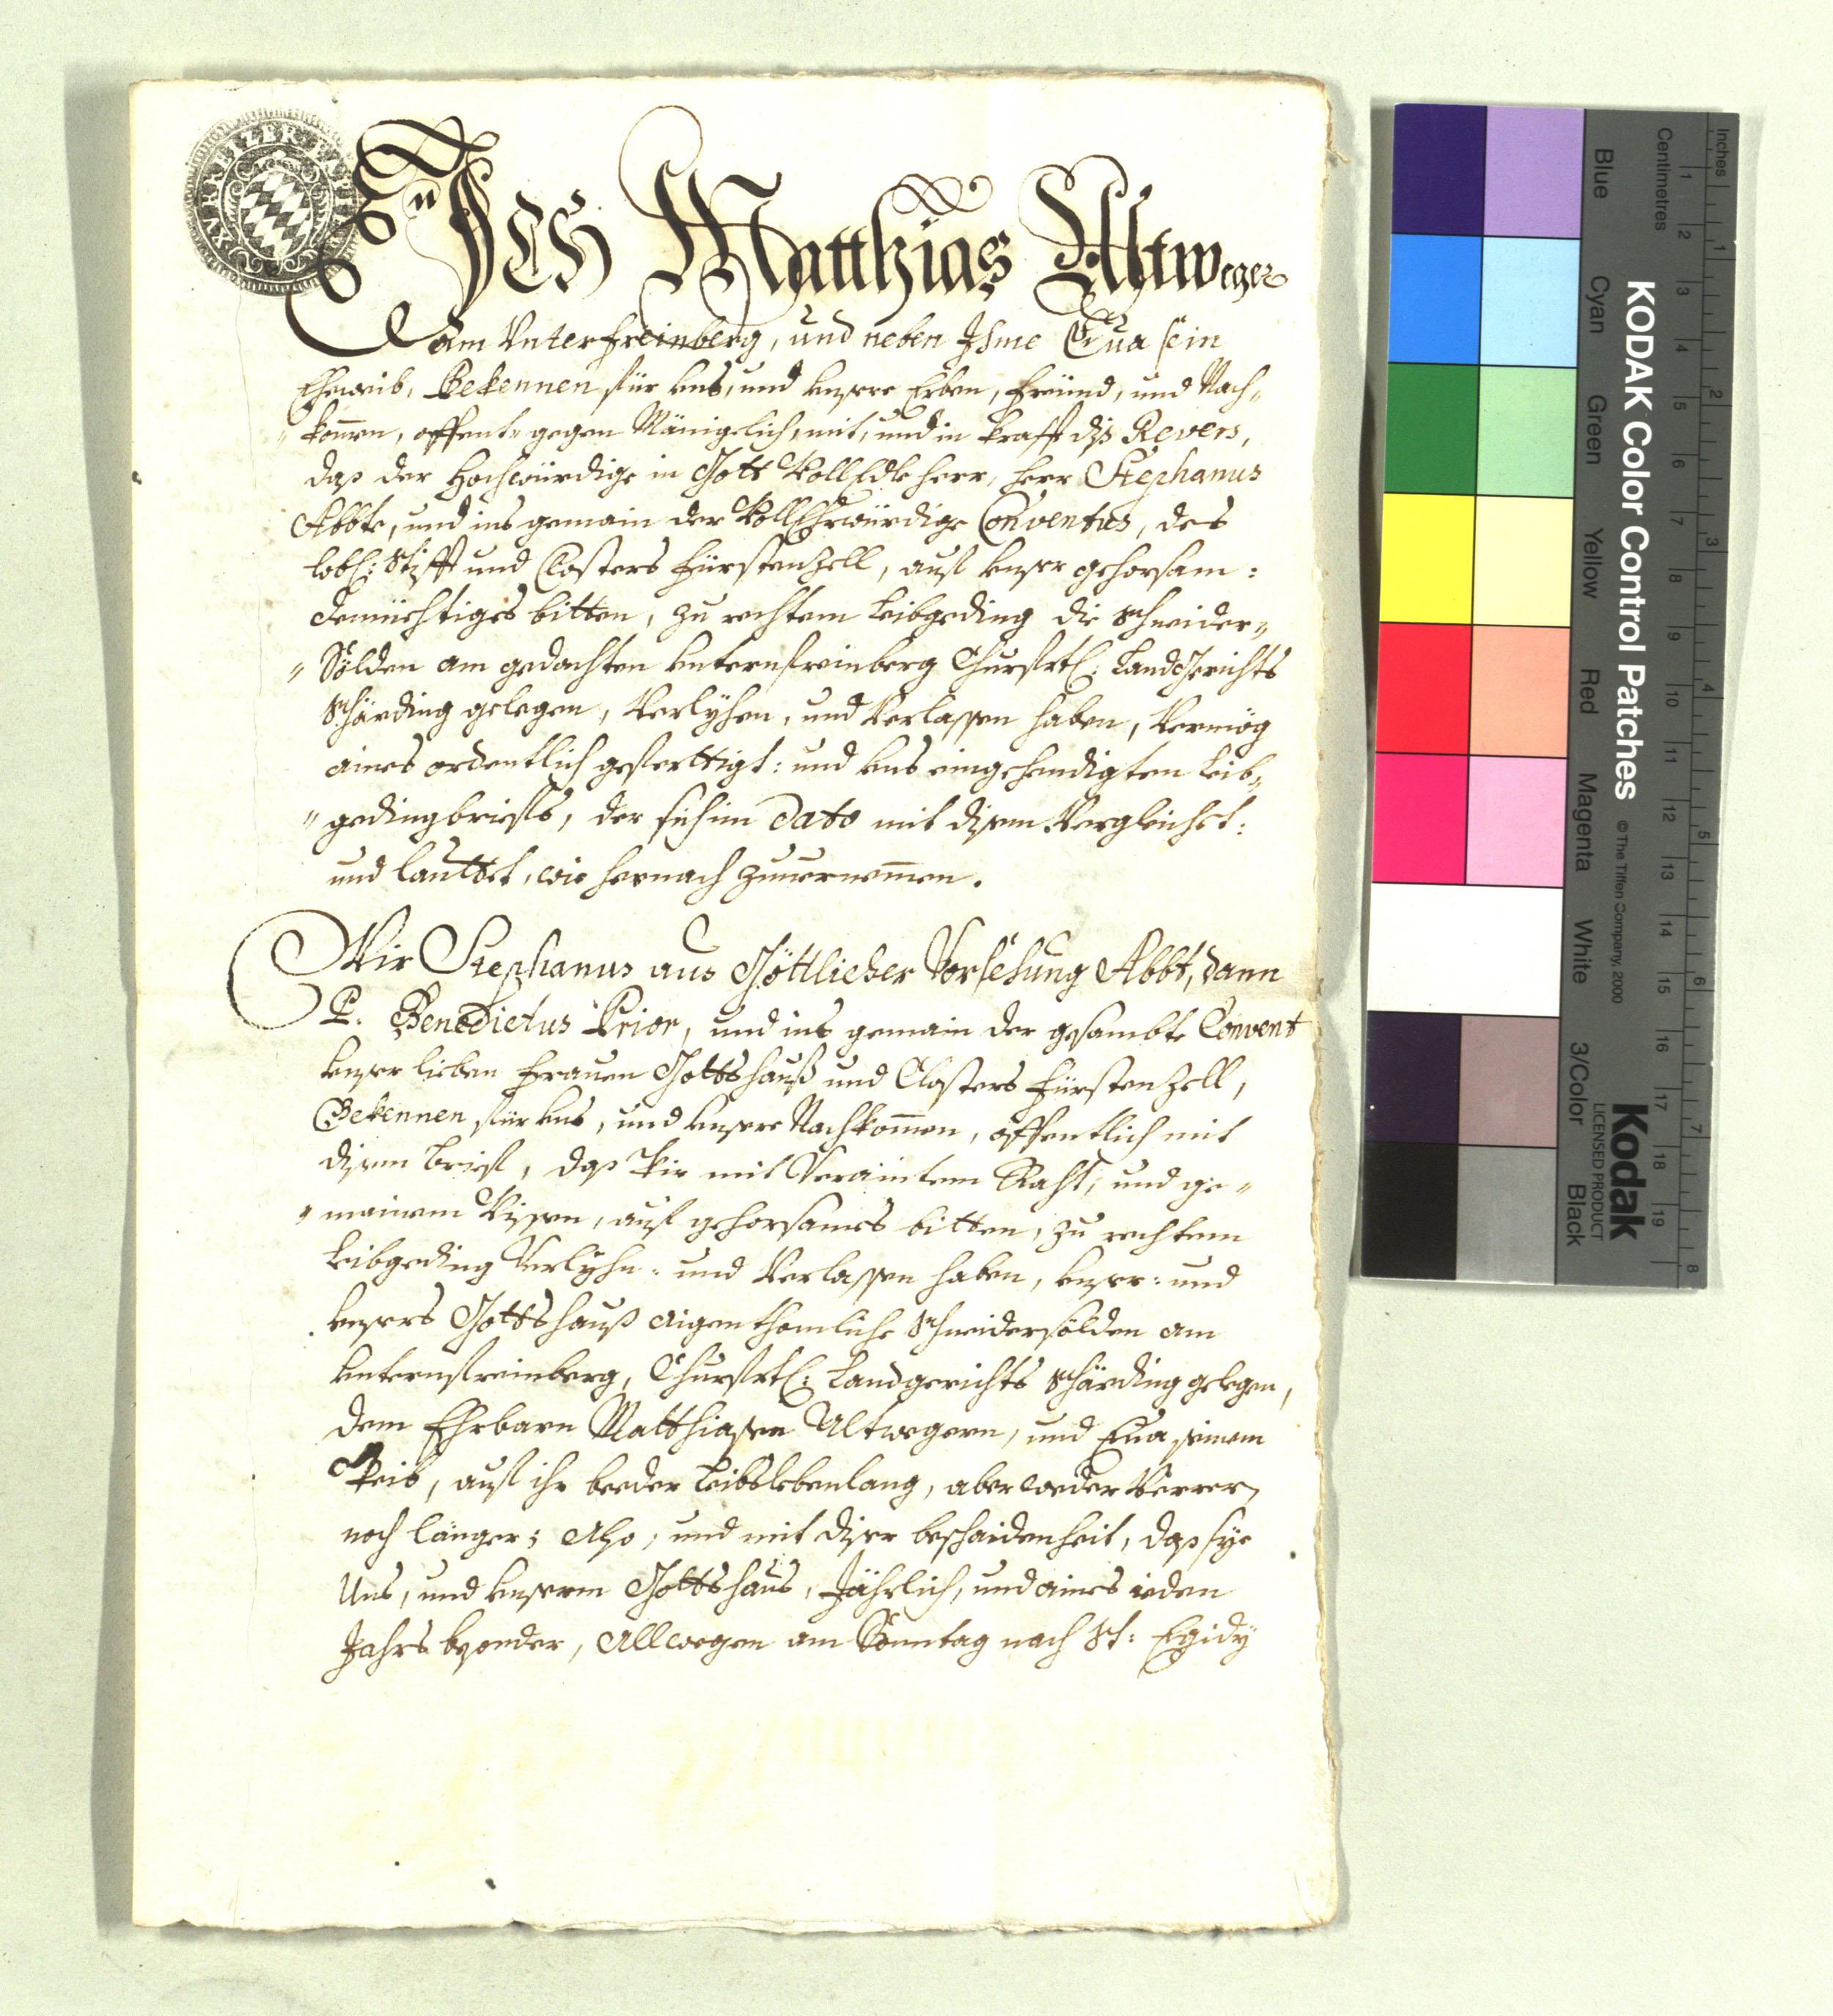 XV KREIZER
Ich Matthias Altweger
am Unterfreinberg, und neben Ihme Eua sein
Eheweib, Bekennen für uns, und unsere Erben, freünd, und Nach„
„kom̄en, offent„ gegen Mänigelich, mit, und in krafft diß Revers,
daß der Hochwürdige in Gott VollEdle Herr, Herr Stephanus
Abbte, und ins gemain der VollEhrwürdige Conventus, des
lobl: Stifft und Closters Fürstenzell, auf unser gehorsam:
demüehtiges bitten, zu rechtem Leibgeding die Schneider„
„Sölden am gedachten Unternfreinberg Churfrtl: LandGerichts
Schärding gelegen, Verlyhen, und Verlassen haben, Vermög
aines ordentlich geferttigt: und uns eingehendigten Leib„
„gedingbriefs, der sich im Dato mit disem Vergleichet:
und lauttet, wie hernach zuuernem̄en.
Wir Stephanus aus Göttlicher Vorsehung Abbt, dann
P. Benedictus Prior, und ins gemain der gesambte Convent
unser lieben Frauen Gottshauß und Closters Fürstenzell,
Bekennen für uns, und unsere Nachkom̄en, offentlich mit
disem brief, daß Wir mit Veraintem Raht, und ge„
„mainem Wissen, auf gehorsames bitten, zu rechtem
Leibgeding Verlÿhn: und Verlassen haben, unser: und
unsers Gottshauß aigenthomliche Schneidersölden am
Unternfreinberg, Churfrtl: Landgerichts Schärding gelegen,
dem Ehrbarn Matthiasen Altwegern, und Eua seinem
Weib, auf ihr beeder Leibslebenlang, aber weder Verrer,
noch länger; Also, und mit diser beschaidenheit, daß sye
Uns, und unserm Gottshaus, Jährlich, und aines ieden
Jahrs besonder, Allwegen am Sonntag nach St: Egidÿ
KODAK Color Control Patches
© The Tiffen Company, 2000
Kodak
LICENSED PRODUCT
Inches
Centimetres
1 2 3 4 5 6 7 8
1 2 3 4 5 6 7 8 9 10 11 12 13 14 15 16 17 18 19
Blue Cyan Green Yellow Red Magenta White 3/Color Black